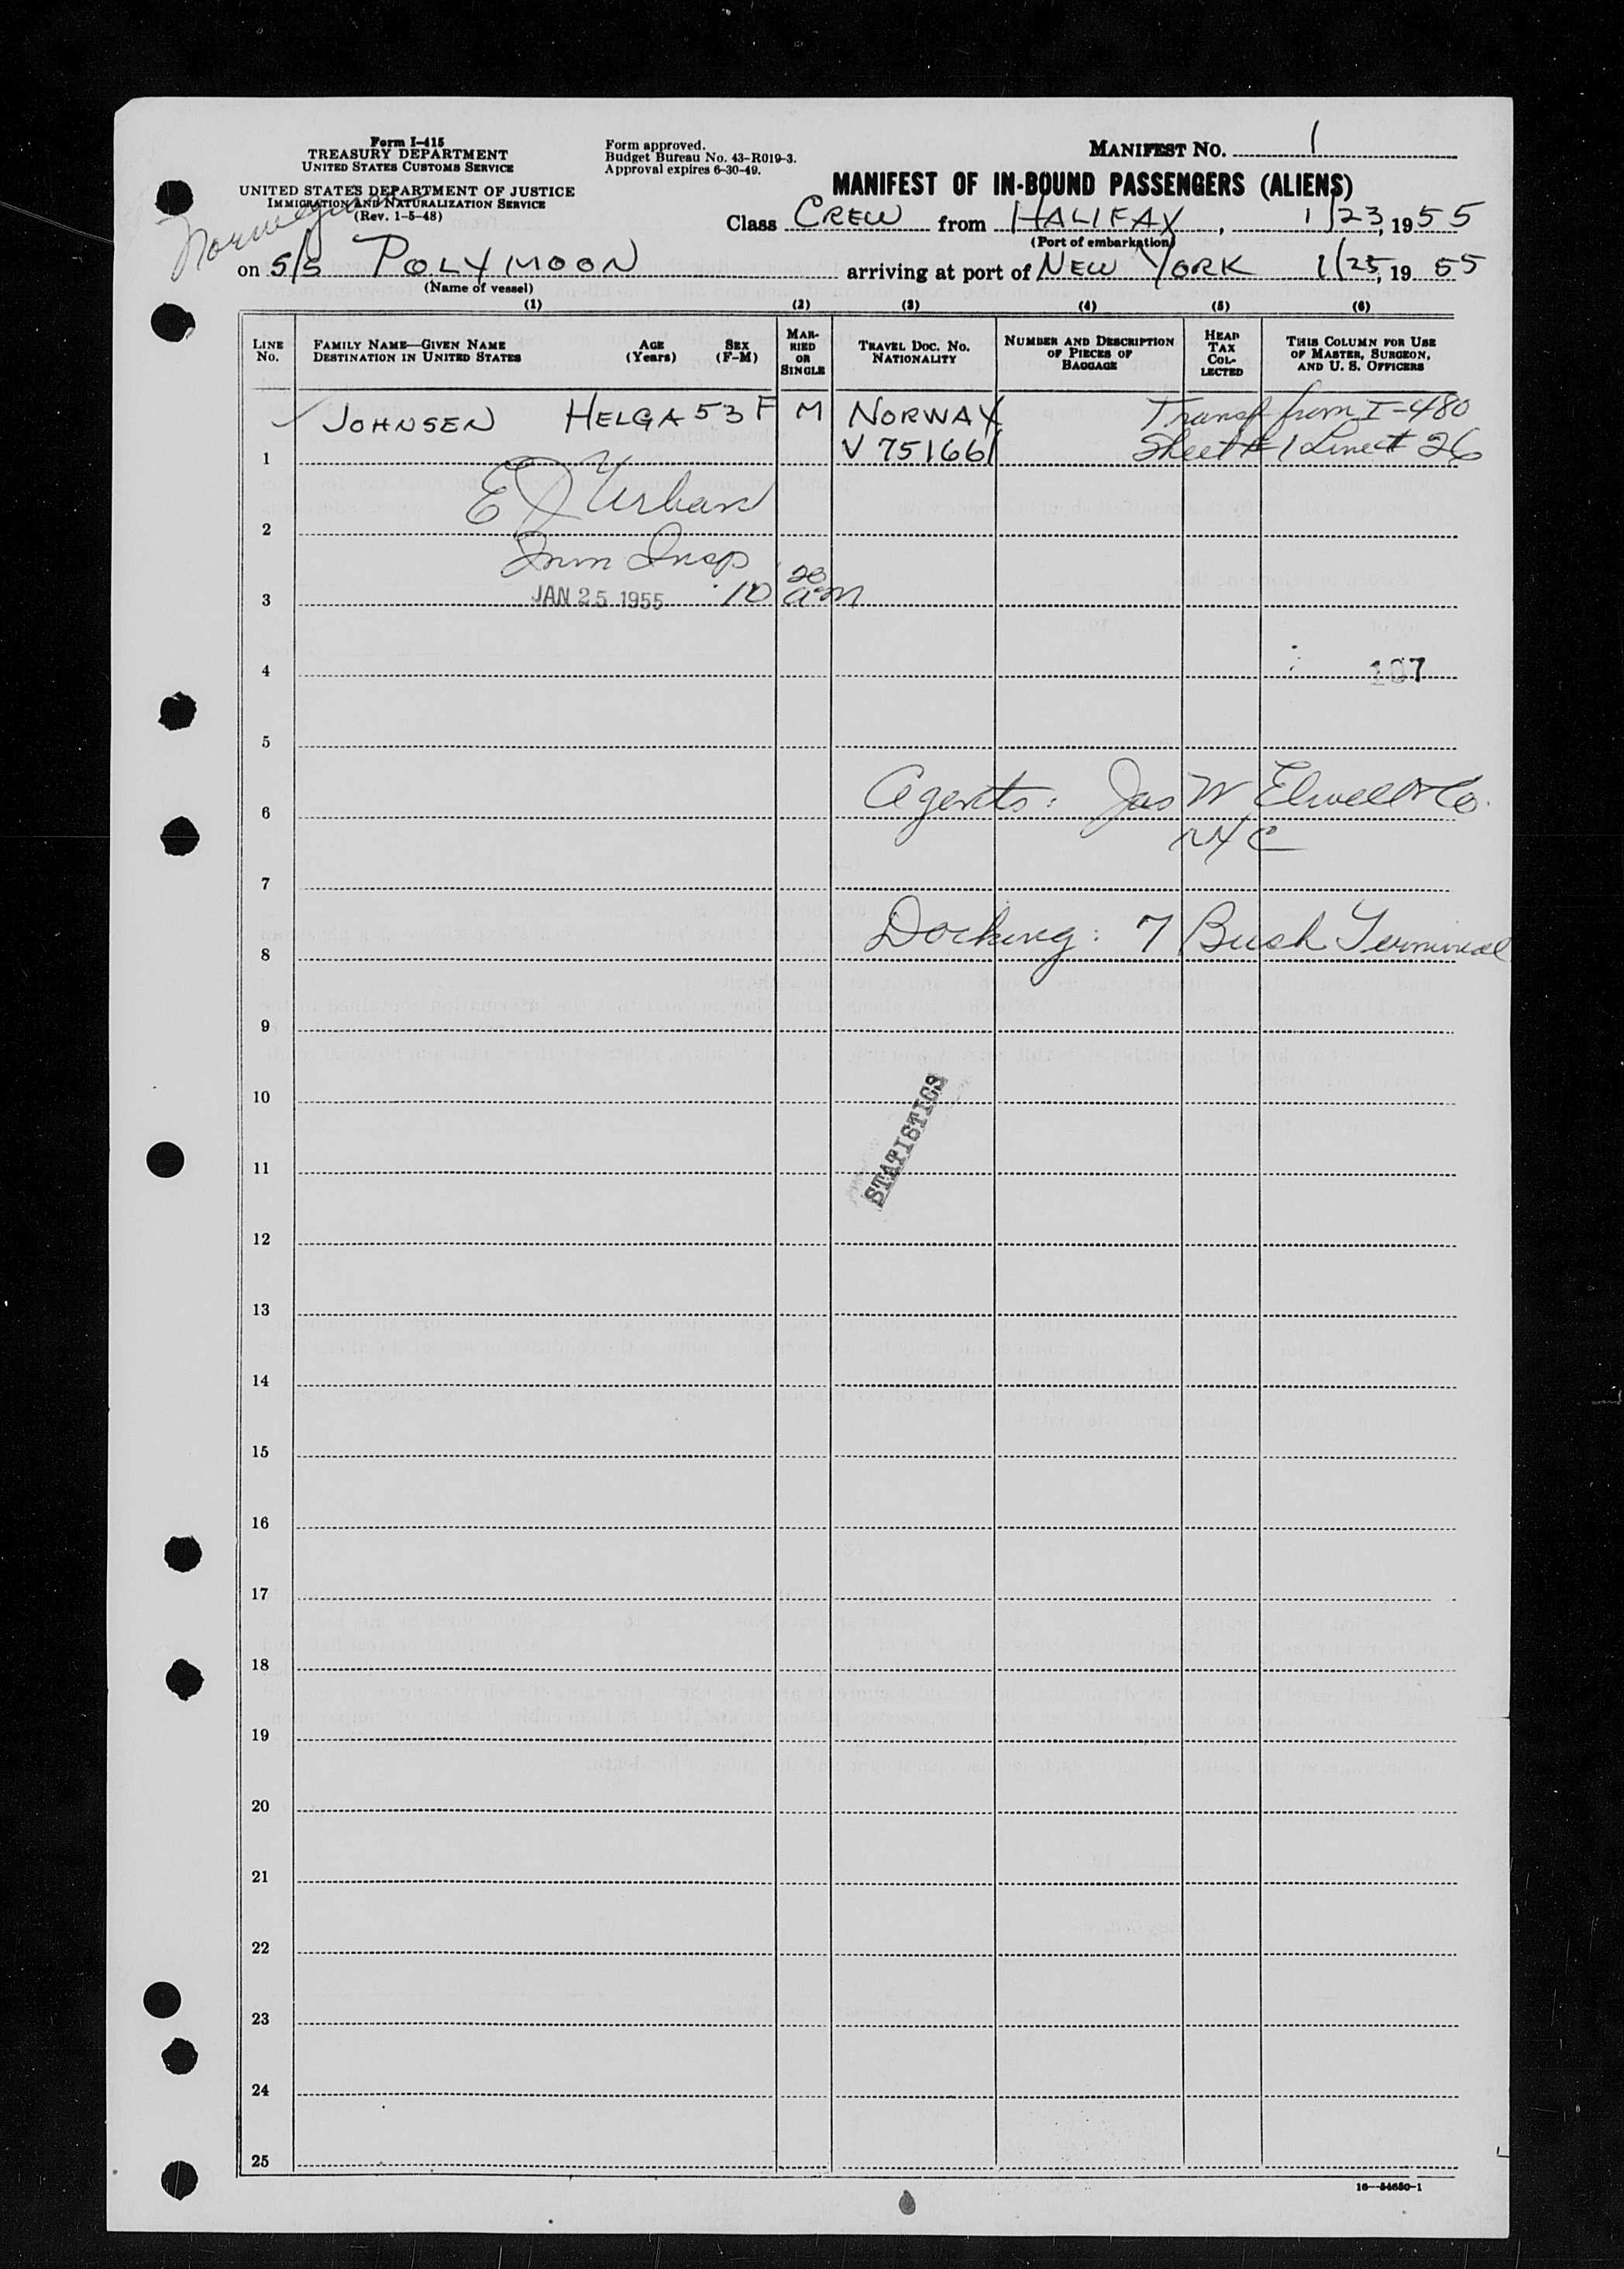 Form I-415
TREASURY DEPARTMENT
UNITED STATES CUSTOMS SERVICE
UNITED STATES DEPARTMENT OF JUSTICE
IMMIGRATION AND NATURALIZATION SERVICE
(Rev. 1-5-48)
Form approved.
Budget Bureau No. 43-R019-3.
Approval expires 6-30-49.
MANIFEST NO. 1
MANIFEST OF IN-BOUND PASSENGERS (ALIENS)
Norwegian
Class CREW from HALIFAX, 1/23, 1955
(Port of embarkation)
on S/S POLYMOON arriving at port of NEW YORK 1/25, 1955
(Name of vessel)
(1) (2) (3) (4) (5) (6)
LINE No. FAMILY NAME—GIVEN NAME DESTINATION IN UNITED STATES AGE (Years) SEX (F-M) MARRIED OR SINGLE TRAVEL DOC. NO. NATIONALITY NUMBER AND DESCRIPTION OF PIECES OF BAGGAGE HEAD TAX COLLECTED THIS COLUMN FOR USE OF MASTER, SURGEON, AND U. S. OFFICERS
JOHNSEN HELGA 53 F M NORWAY Transf from I-480
1 V 751661 Sheet # 1 Line # 26
E J Urban
2
Imm Insp
3 JAN 25 1955 10 20 am
4 107
5
Agents: Jas W Elwell & Co.
6
NYC
7
Docking: 7 Bush Terminal
8
9
10
STATISTICS
11
12
13
14
15
16
17
18
19
20
21
22
23
24
25
16—54650-1